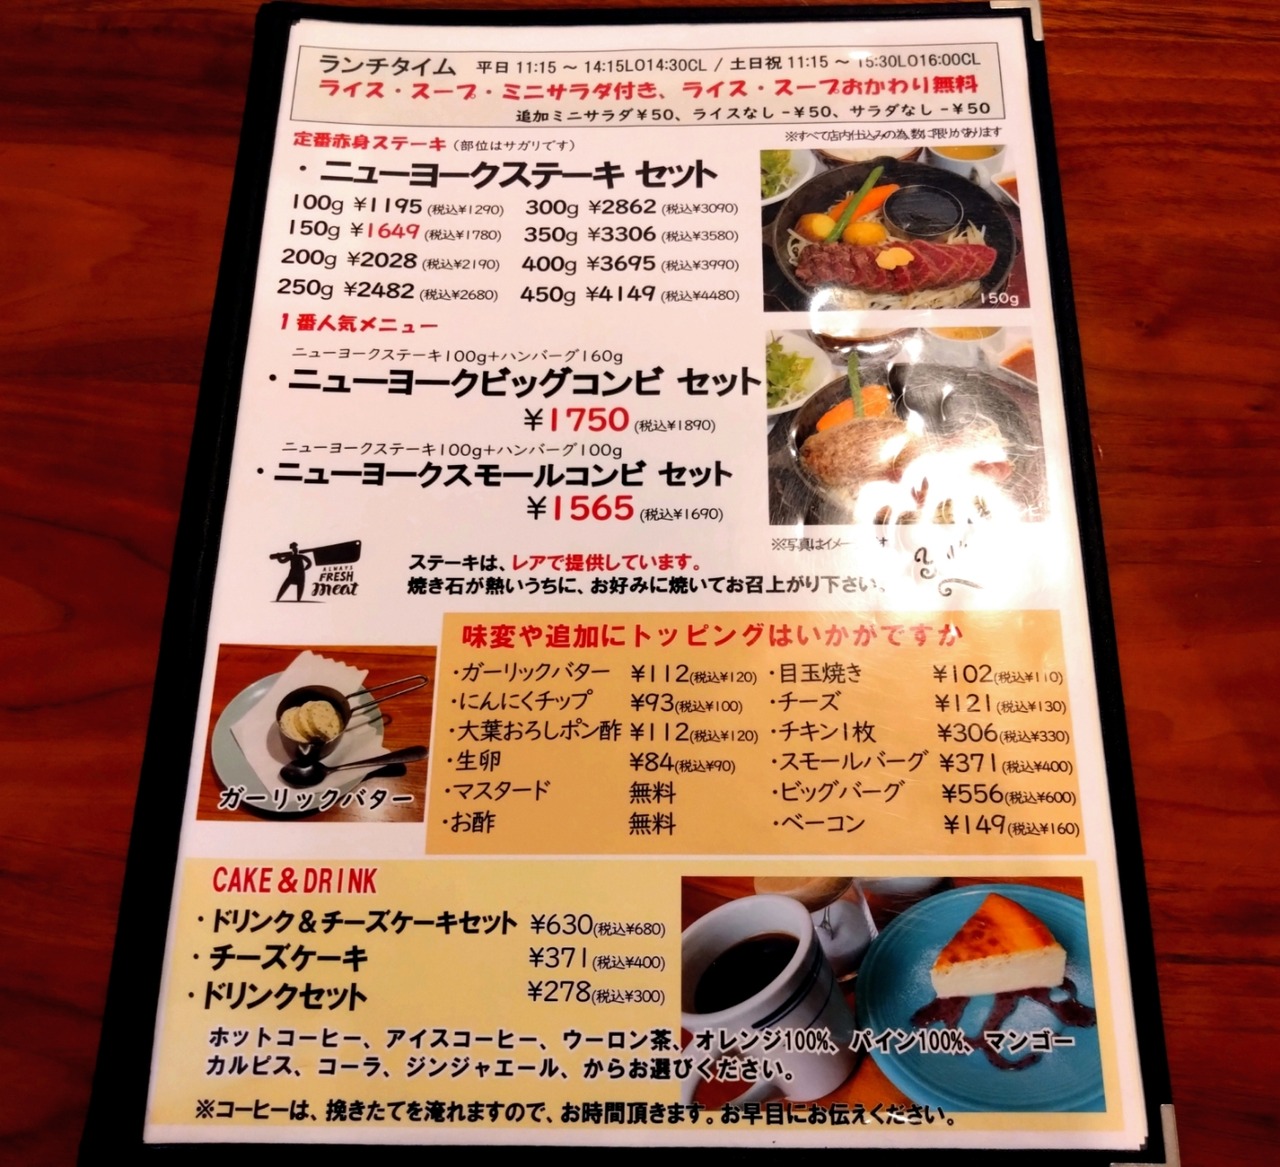 ランチタイム 平日 11:15 ～ 14:15LO14:30CL / 土日祝 11:15 ～ 15:30LO16:00CL
ライス・スープ・ミニサラダ付き、ライス・スープおかわり無料
追加ミニサラダ¥50、ライスなし -¥50、サラダなし -¥50
定番赤身ステーキ (部位はサガリです)
※すべて店内仕込みの為、数に限りがあります
・ニューヨークステーキ セット
100g ¥1195 (税込¥1290) 300g ¥2862 (税込¥3090)
150g ¥1649 (税込¥1780) 350g ¥3306 (税込¥3580)
200g ¥2028 (税込¥2190) 400g ¥3695 (税込¥3990)
250g ¥2482 (税込¥2680) 450g ¥4149 (税込¥4480)
150g
1番人気メニュー
ニューヨークステーキ100g+ハンバーグ160g
・ニューヨークビッグコンビ セット
¥1750 (税込¥1890)
ニューヨークステーキ100g+ハンバーグ100g
・ニューヨークスモールコンビ セット
¥1565 (税込¥1690)
※写真はイメージ
ALWAYS
FRESH
meat
ステーキは、レアで提供しています。
焼き石が熱いうちに、お好みに焼いてお召上がり下さい。
味変や追加にトッピングはいかがですか
・ガーリックバター ¥112(税込¥120) ・目玉焼き ¥102(税込¥110)
・にんにくチップ ¥93(税込¥100) ・チーズ ¥121(税込¥130)
・大葉おろしポン酢 ¥112(税込¥120) ・チキン1枚 ¥306(税込¥330)
・生卵 ¥84(税込¥90) ・スモールバーグ ¥371(税込¥400)
・マスタード 無料 ・ビッグバーグ ¥556(税込¥600)
・お酢 無料 ・ベーコン ¥149(税込¥160)
ガーリックバター
CAKE＆DRINK
・ドリンク＆チーズケーキセット ¥630(税込¥680)
・チーズケーキ ¥371(税込¥400)
・ドリンクセット ¥278(税込¥300)
ホットコーヒー、アイスコーヒー、ウーロン茶、オレンジ100%、パイン100%、マンゴー
カルピス、コーラ、ジンジャエール、からお選びください。
※コーヒーは、挽きたてを淹れますので、お時間頂きます。お早目にお伝えください。